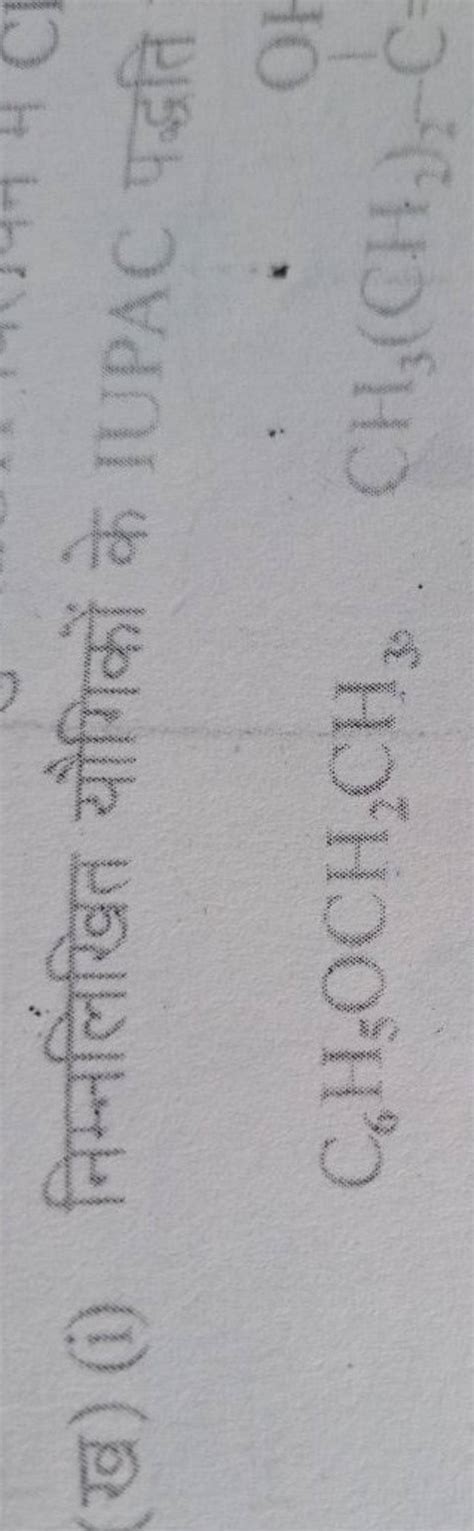 (ख) (i) निम्नलिखित यौगिकों के IUPAC पद्धति
OH
|
C₆H₅OCH₂CH₃, CH₃(CH₂)₂–C=